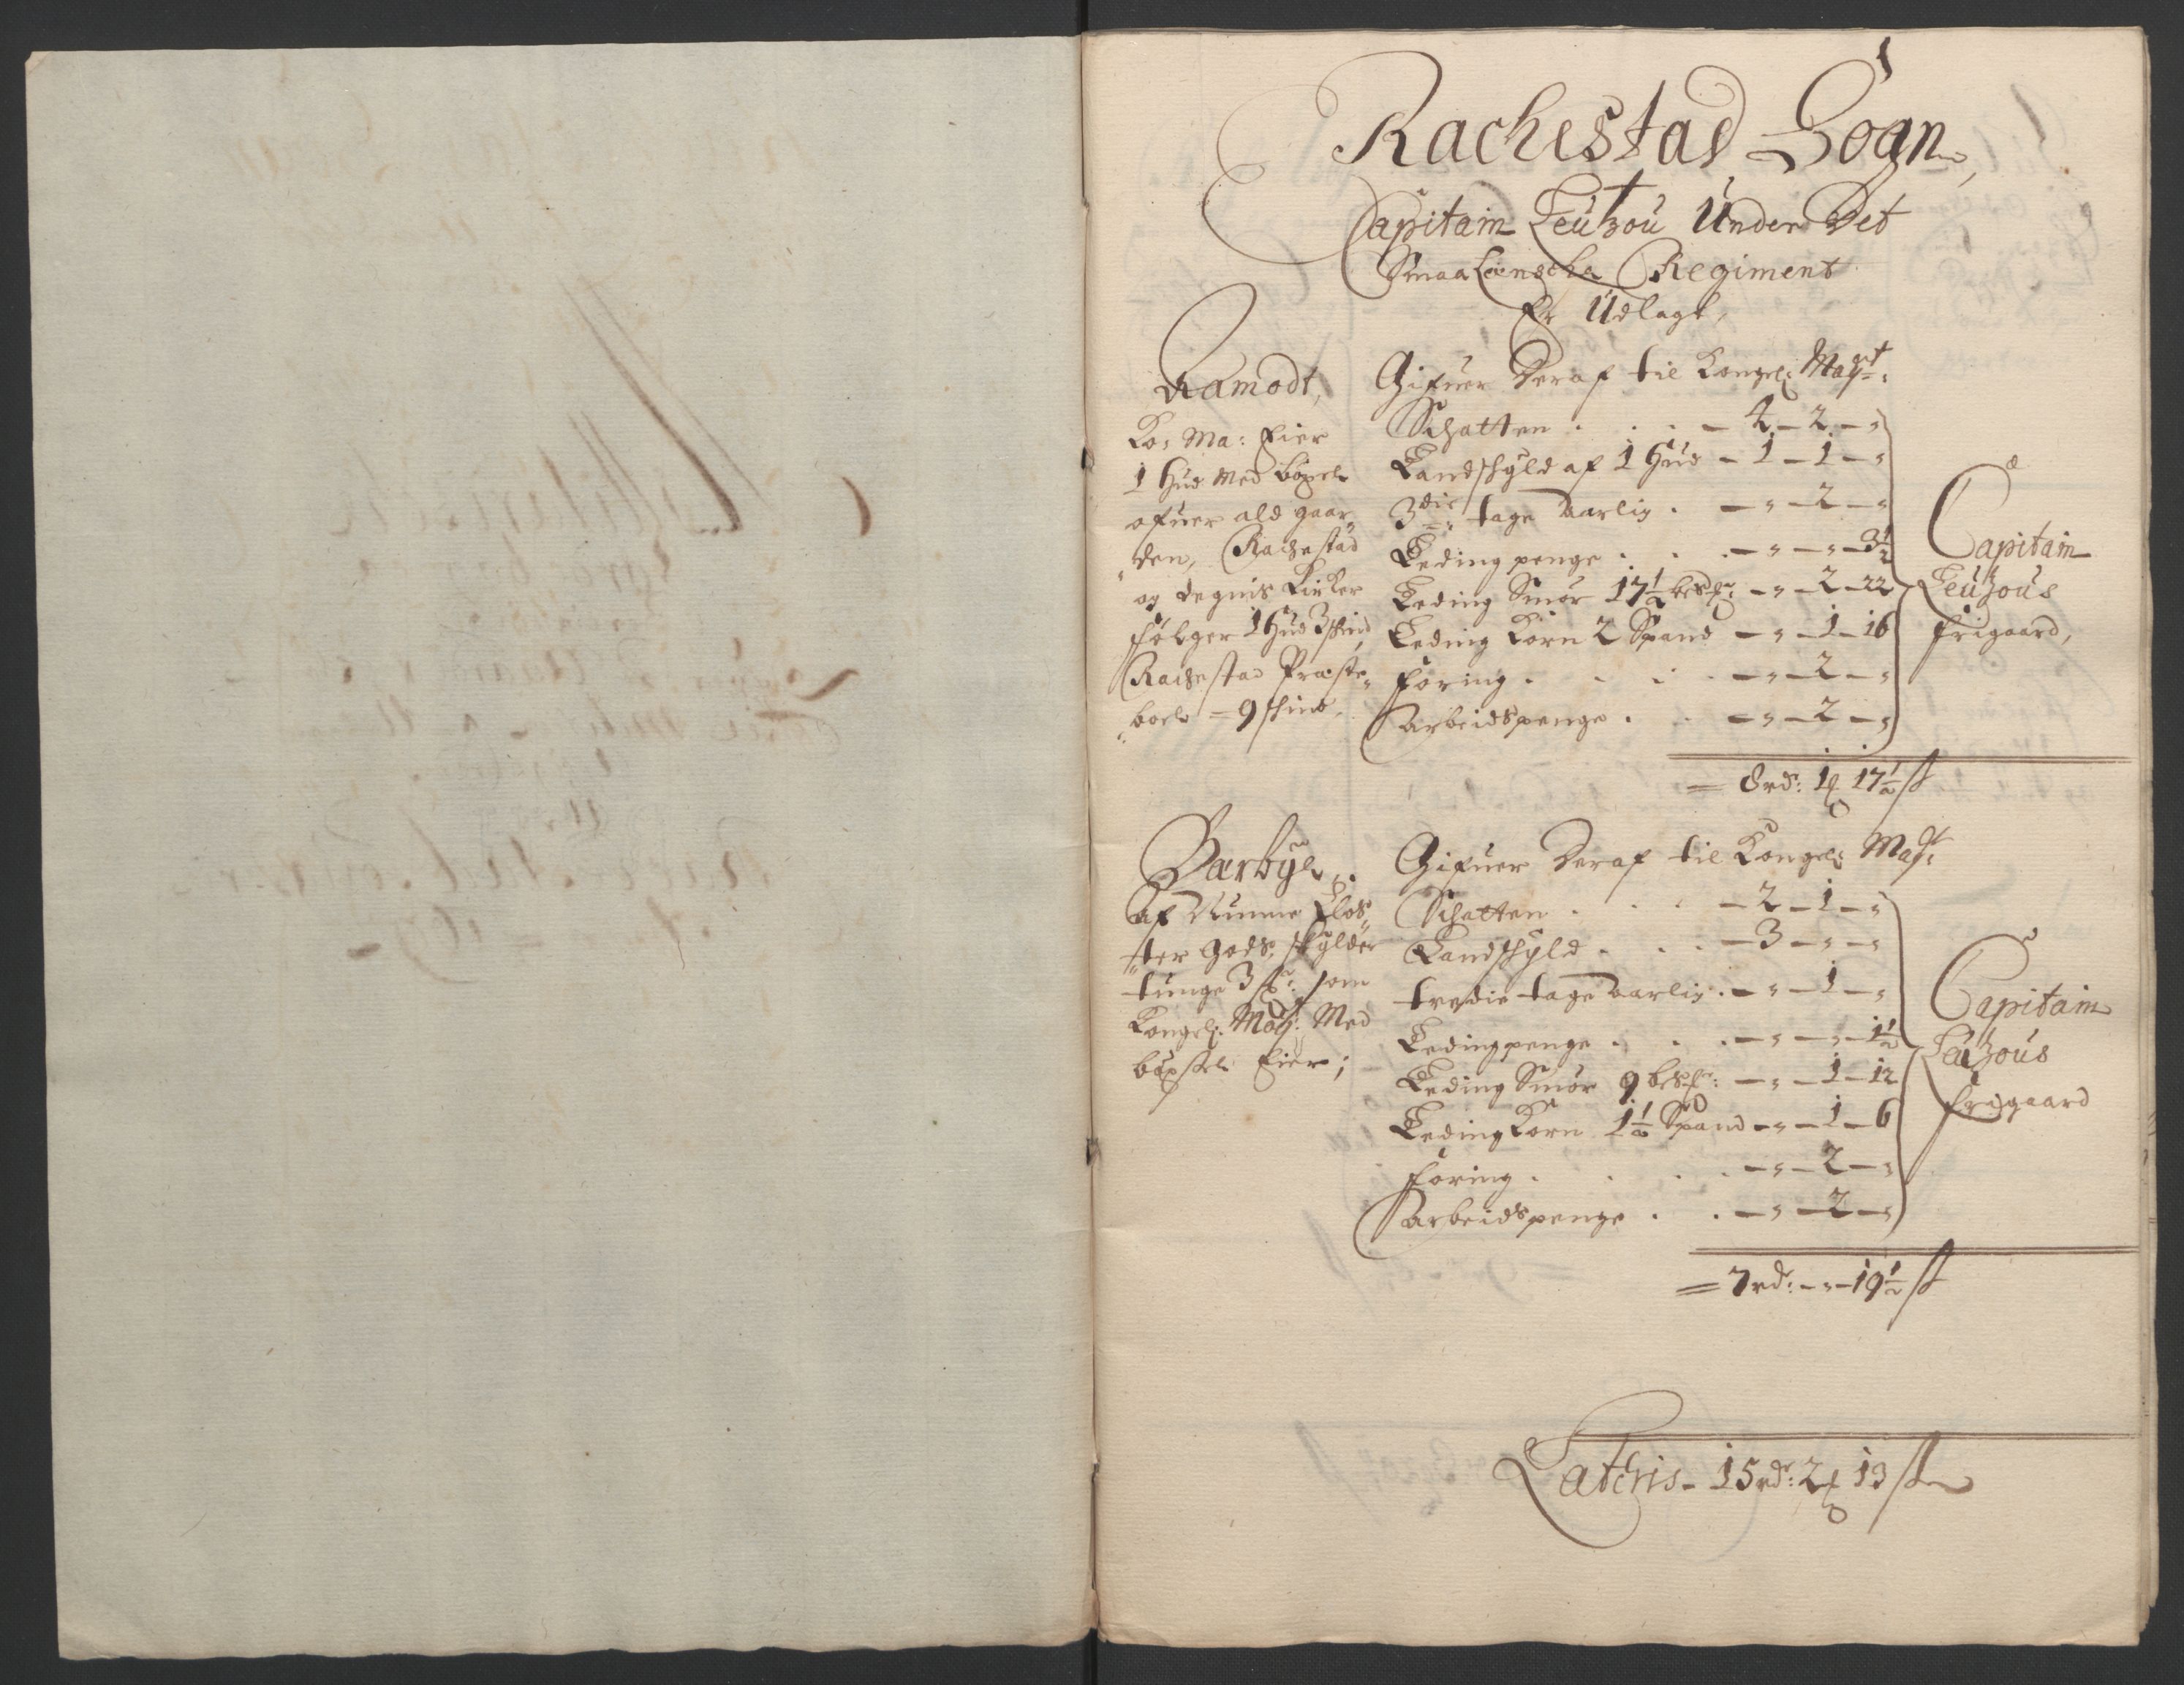 1
Rachestad Sogn,
Capitain Leützou Under Det
Smaalenscke Regiment
Er Udlagt,
Ramodt,
Ko: Ma: Eier
1 Hud med böxel
ofuer ald gaar„
„den, Rachestad
og Degnis Kircker
fölger 1 Hud 3 skind
Rachestad Præste„
„boel = 9 skind,
Gifuer Deraf til Kongel: Mayt:
Schatten . . . – 4 – 2 – „
Landschyld af 1 Hud – 1 – 1 – „
3die tage aarlig . – „ – 2 – „
Leding penge . . . – „ – „ – 3½
Leding Smör 17½ besp: – „ – 2 – 22
Leding Korn 2 Spand – „ – 1 – 16
Foring . . . . – „ – 2 – „
Arbeidspenge . . – „ – 2 – „
Capitain
Leützous
frigaard,
= 8 rdr: 1 17½ ß
Bærbye,
Af Nunne Clos„
„ter Gods, skylder
tunge 3 som
Kongel: May: Med
böxsel Eier;
Gifuer Deraf til Kongel: Mayt:
Schatten . . . – 2 – 1 – „
Landschyld . . . – 3 – „ – „
tredie tage aarlig . – „ – 1 – „
Ledingpenge . . . – „ – „ – 1½
Leding Smör 9 besp: – „ – 1 – 12
Leding Korn 1½ Spand – „ – 1 – 6
Foring . . . . – „ – 2 – „
Arbeidspenge . . – „ – 2 – „
Capitain
Leützous
frigaard
= 7 rdr: – „ – 19½ ß
Lateris – 15 rdr: 2 13 ß